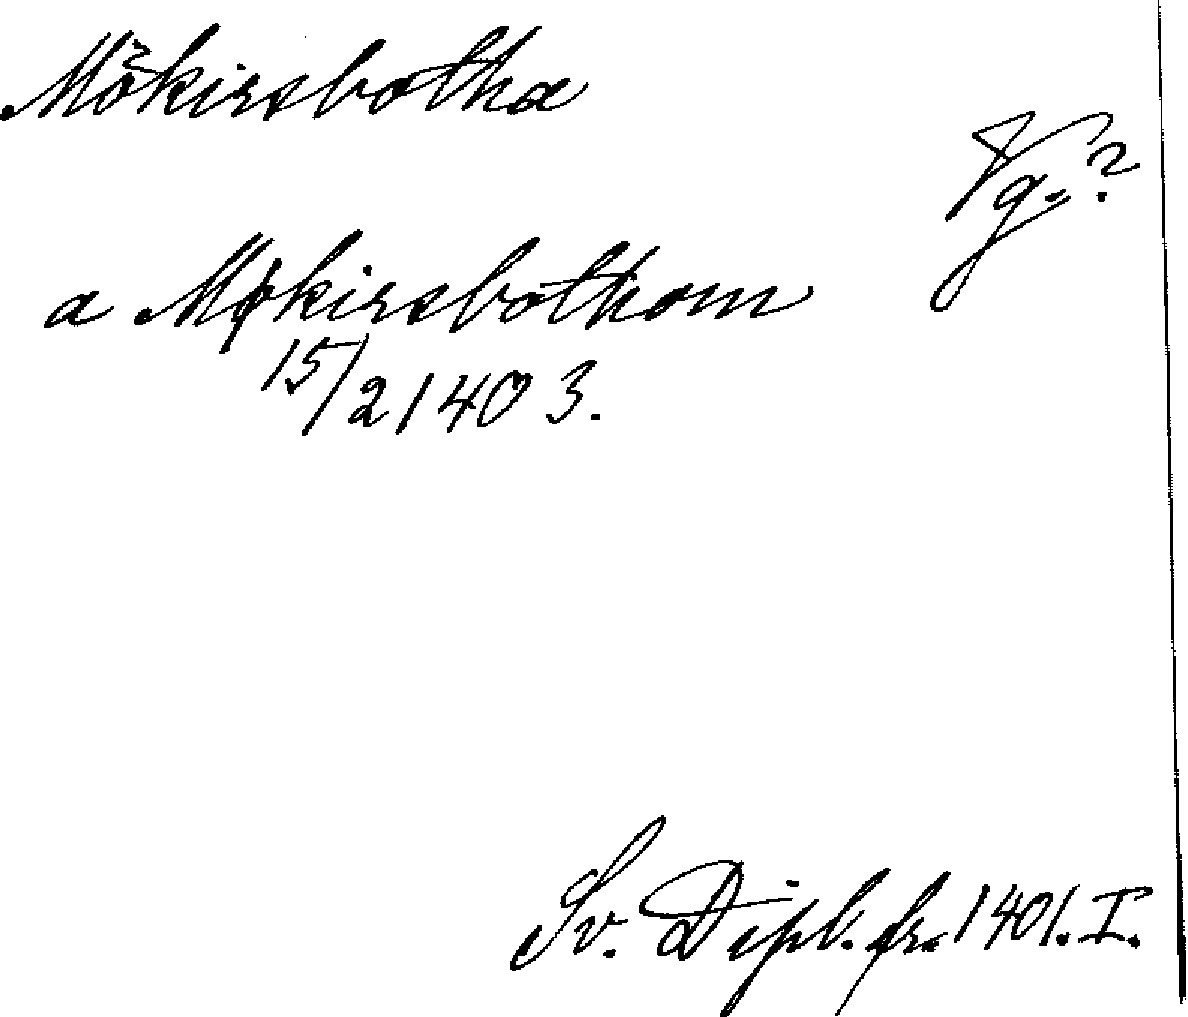 Mökirsbotha
Vg.?
a Møkirsbothom
15/2 1403.
Sv. Dipl. fr. 1401. I.